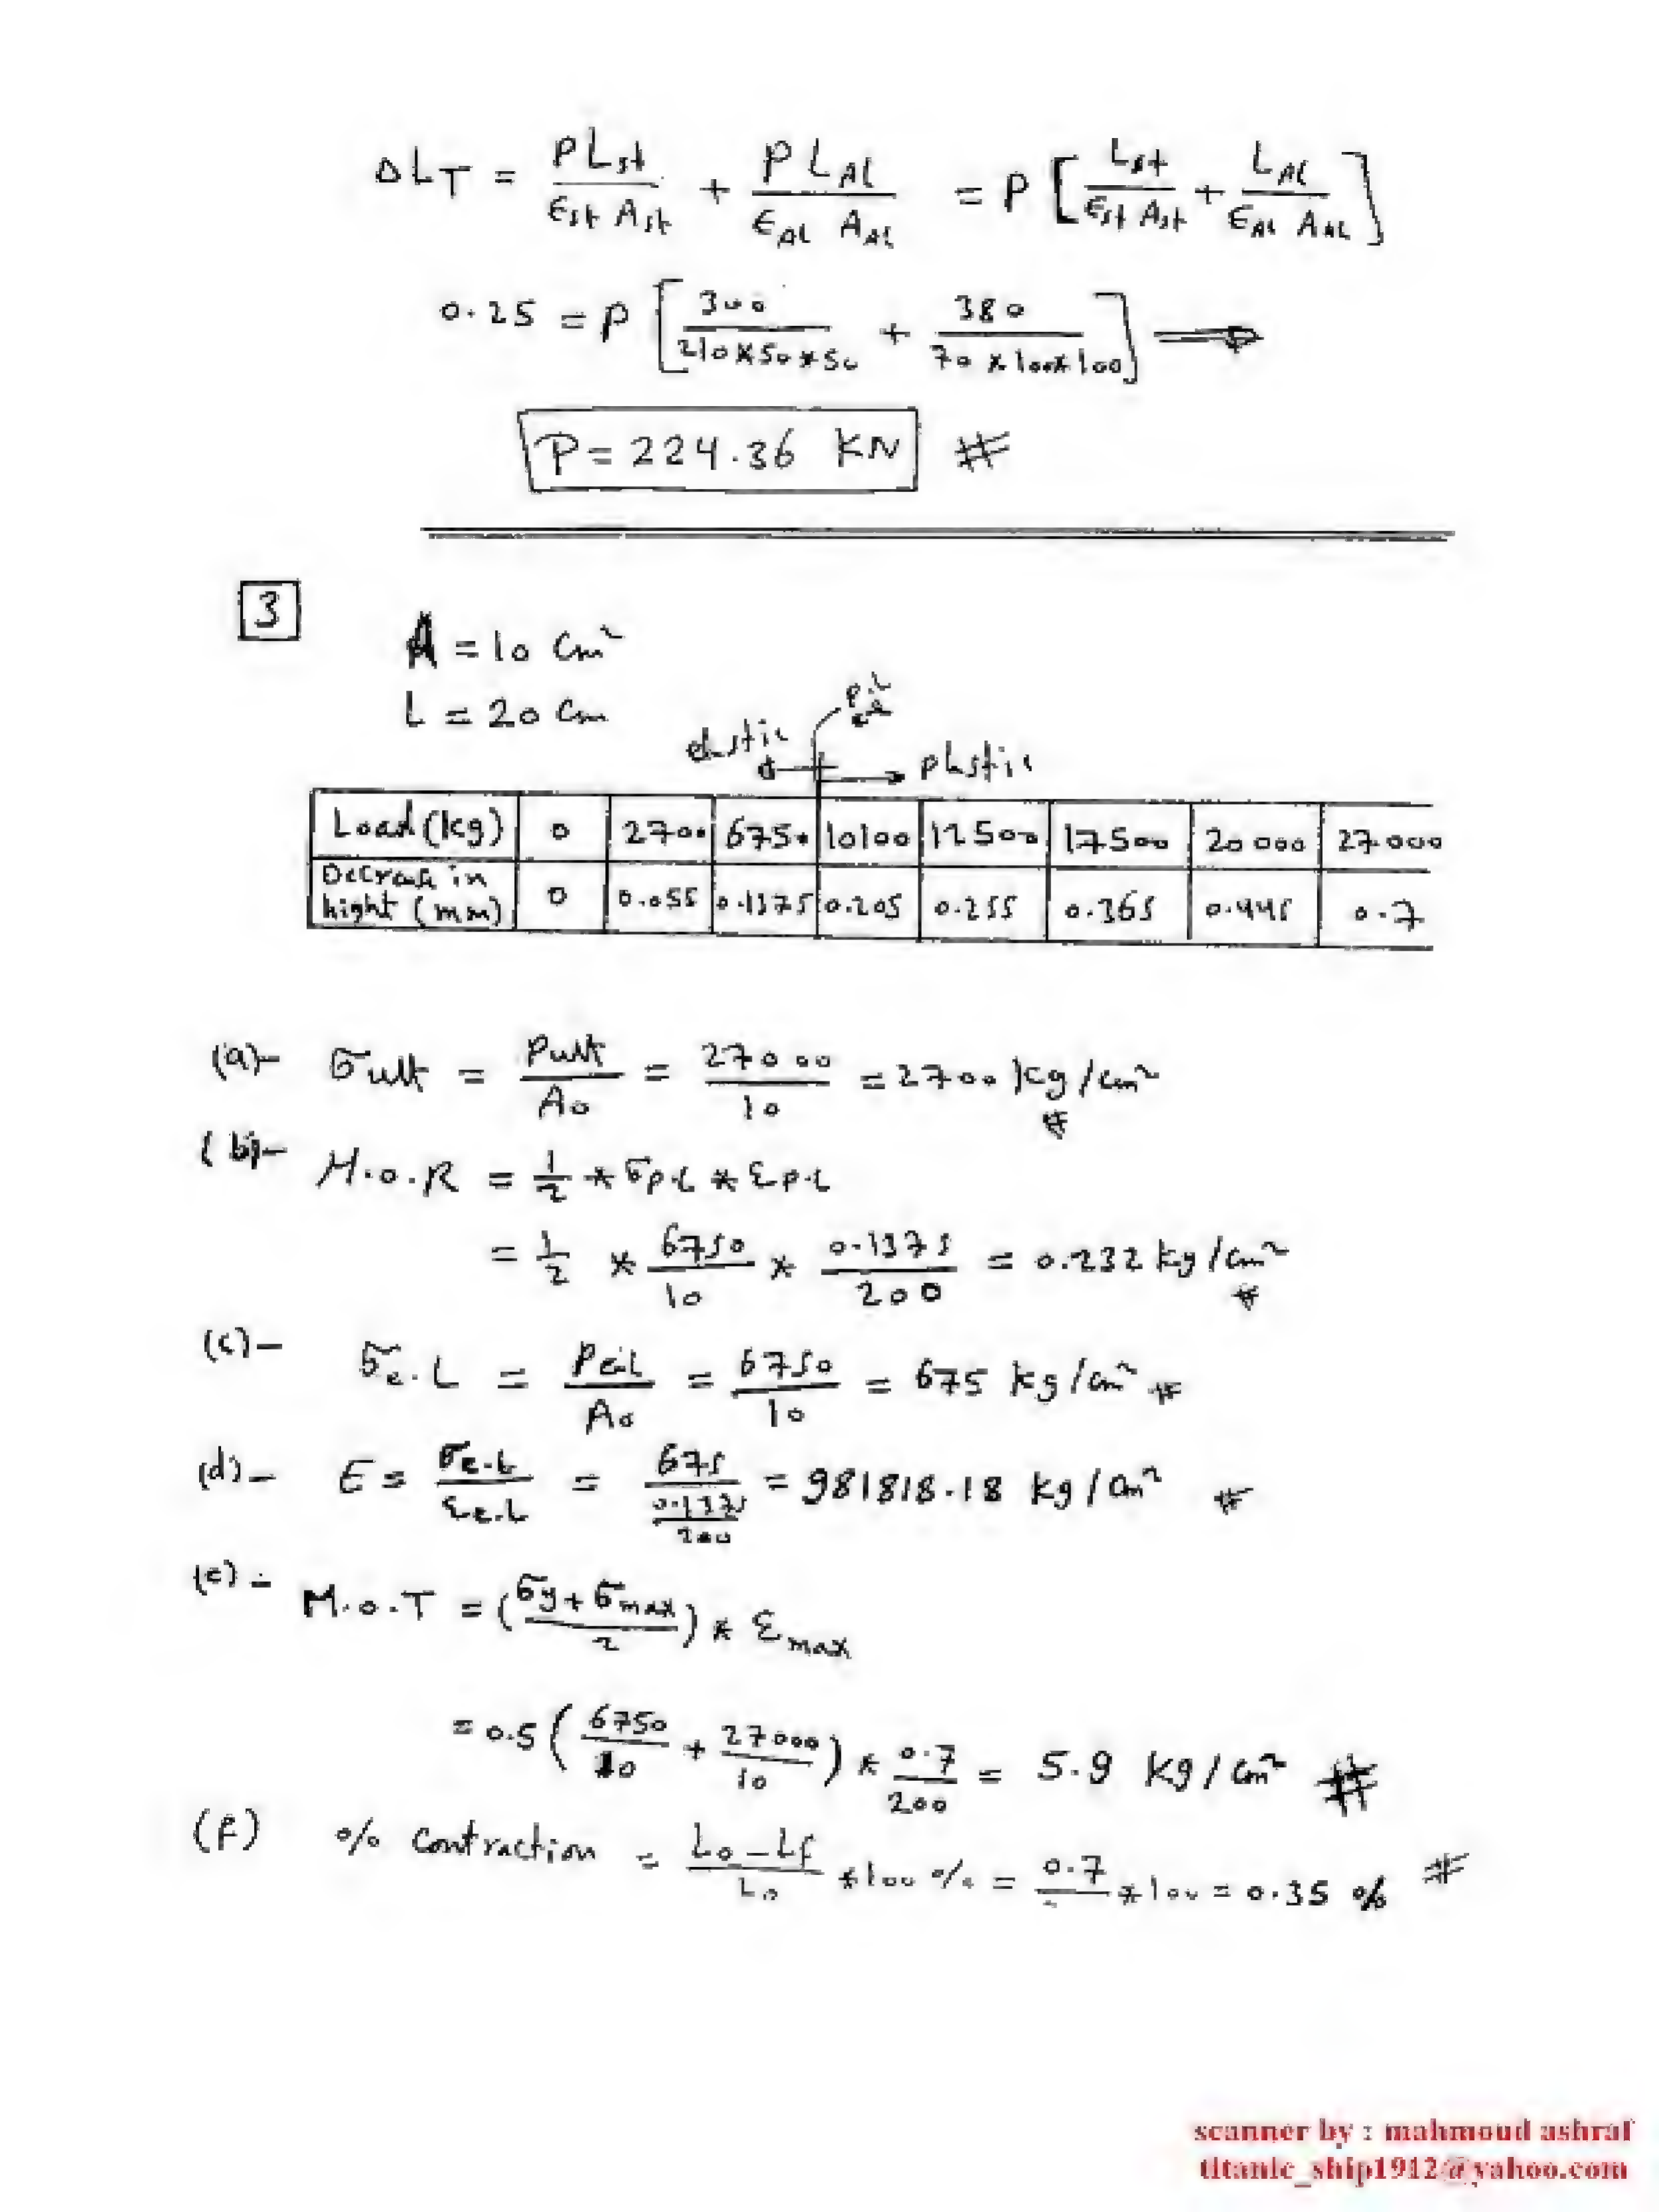 ΔL_T = P L_st / (E_st A_st) + P L_Al / (E_Al A_Al) = P [ L_st / (E_st A_st) + L_Al / (E_Al A_Al) ]
0.25 = P [ 300 / (210*50*50) + 380 / (70*100*100) ] ⟹
P = 224.36 KN #
3
A = 10 cm²
L = 20 cm
P.L
elastic
plastic
Load (kg) 0 2700 6750 10100 12500 17500 20000 27000
Decrease in hight (mm) 0 0.055 0.1375 0.205 0.255 0.365 0.445 0.7
(a)- σult = Pult / A0 = 27000 / 10 = 2700 kg/cm² #
(b)- M.O.R = 1/2 * σP.L * εP.L
= 1/2 * 6750/10 * 0.1375/200 = 0.232 kg/cm² #
(c)- σe.L = Pe.L / A0 = 6750 / 10 = 675 kg/cm² #
(d)- E = σe.L / εe.L = 675 / (0.1375/200) = 981818.18 kg/cm² #
(e)- M.O.T = ((σy + σmax) / 2) * εmax
= 0.5 ( 6750/10 + 27000/10 ) * 0.7/200 = 5.9 kg/cm² #
(f) % contraction = (L0 - Lf) / L0 *100 % = 0.7 / *100 = 0.35 % #
scanner by : mahmoud ashraf
titanic_ship1912@yahoo.com